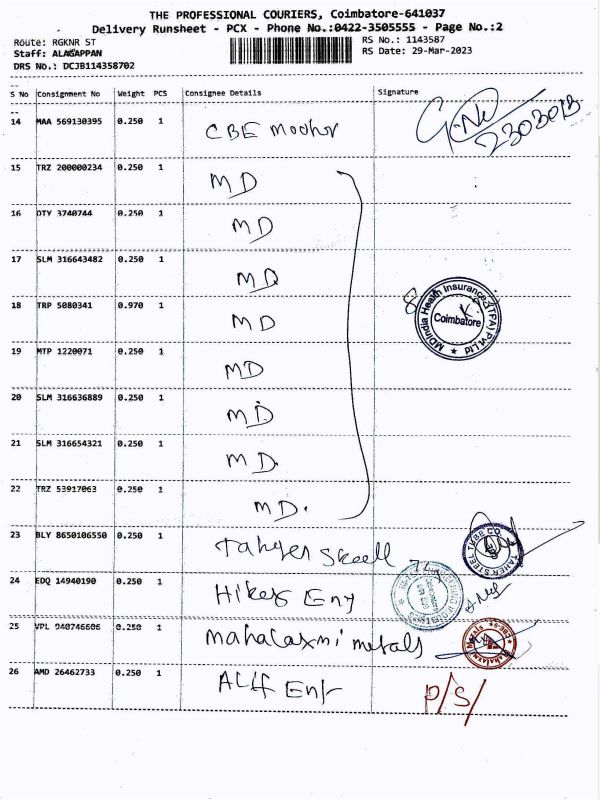 THE PROFESSIONAL COURIERS, Coimbatore-641037
Delivery Runsheet - PCX - Phone No.:0422-3505555 - Page No.:2
Route: RGKNR ST
RS No.: 1143587
Staff: ALAGAPPAN
RS Date: 29-Mar-2023
DRS No.: DCJB114358702
S No Consignment No Weight PCS Consignee Details Signature
14 MAA 569130395 0.250 1 CBE
15 TRZ 200000234 0.250 1 MD
16 OTY 3740744 0.250 1 MD
17 SLM 316643482 0.250 1 MD
18 TRP 5080341 0.970 1 MD
MDIndia Health Insurance (TPA) Pvt Ltd
Coimbatore
19 MTP 1220071 0.250 1 MD
20 SLM 316636889 0.250 1 MD
21 SLM 316654321 0.250 1 MD.
22 TRZ 53917063 0.250 1 MD.
23 BLY 8650106550 0.250 1
TAHER STEEL TUBE CO
24 EDQ 14940190 0.250 1 Hikes Eny
25 VPL 940746606 0.250 1 mahalaxmi metals
26 AMD 26462733 0.250 1 ALff Entr P/S/